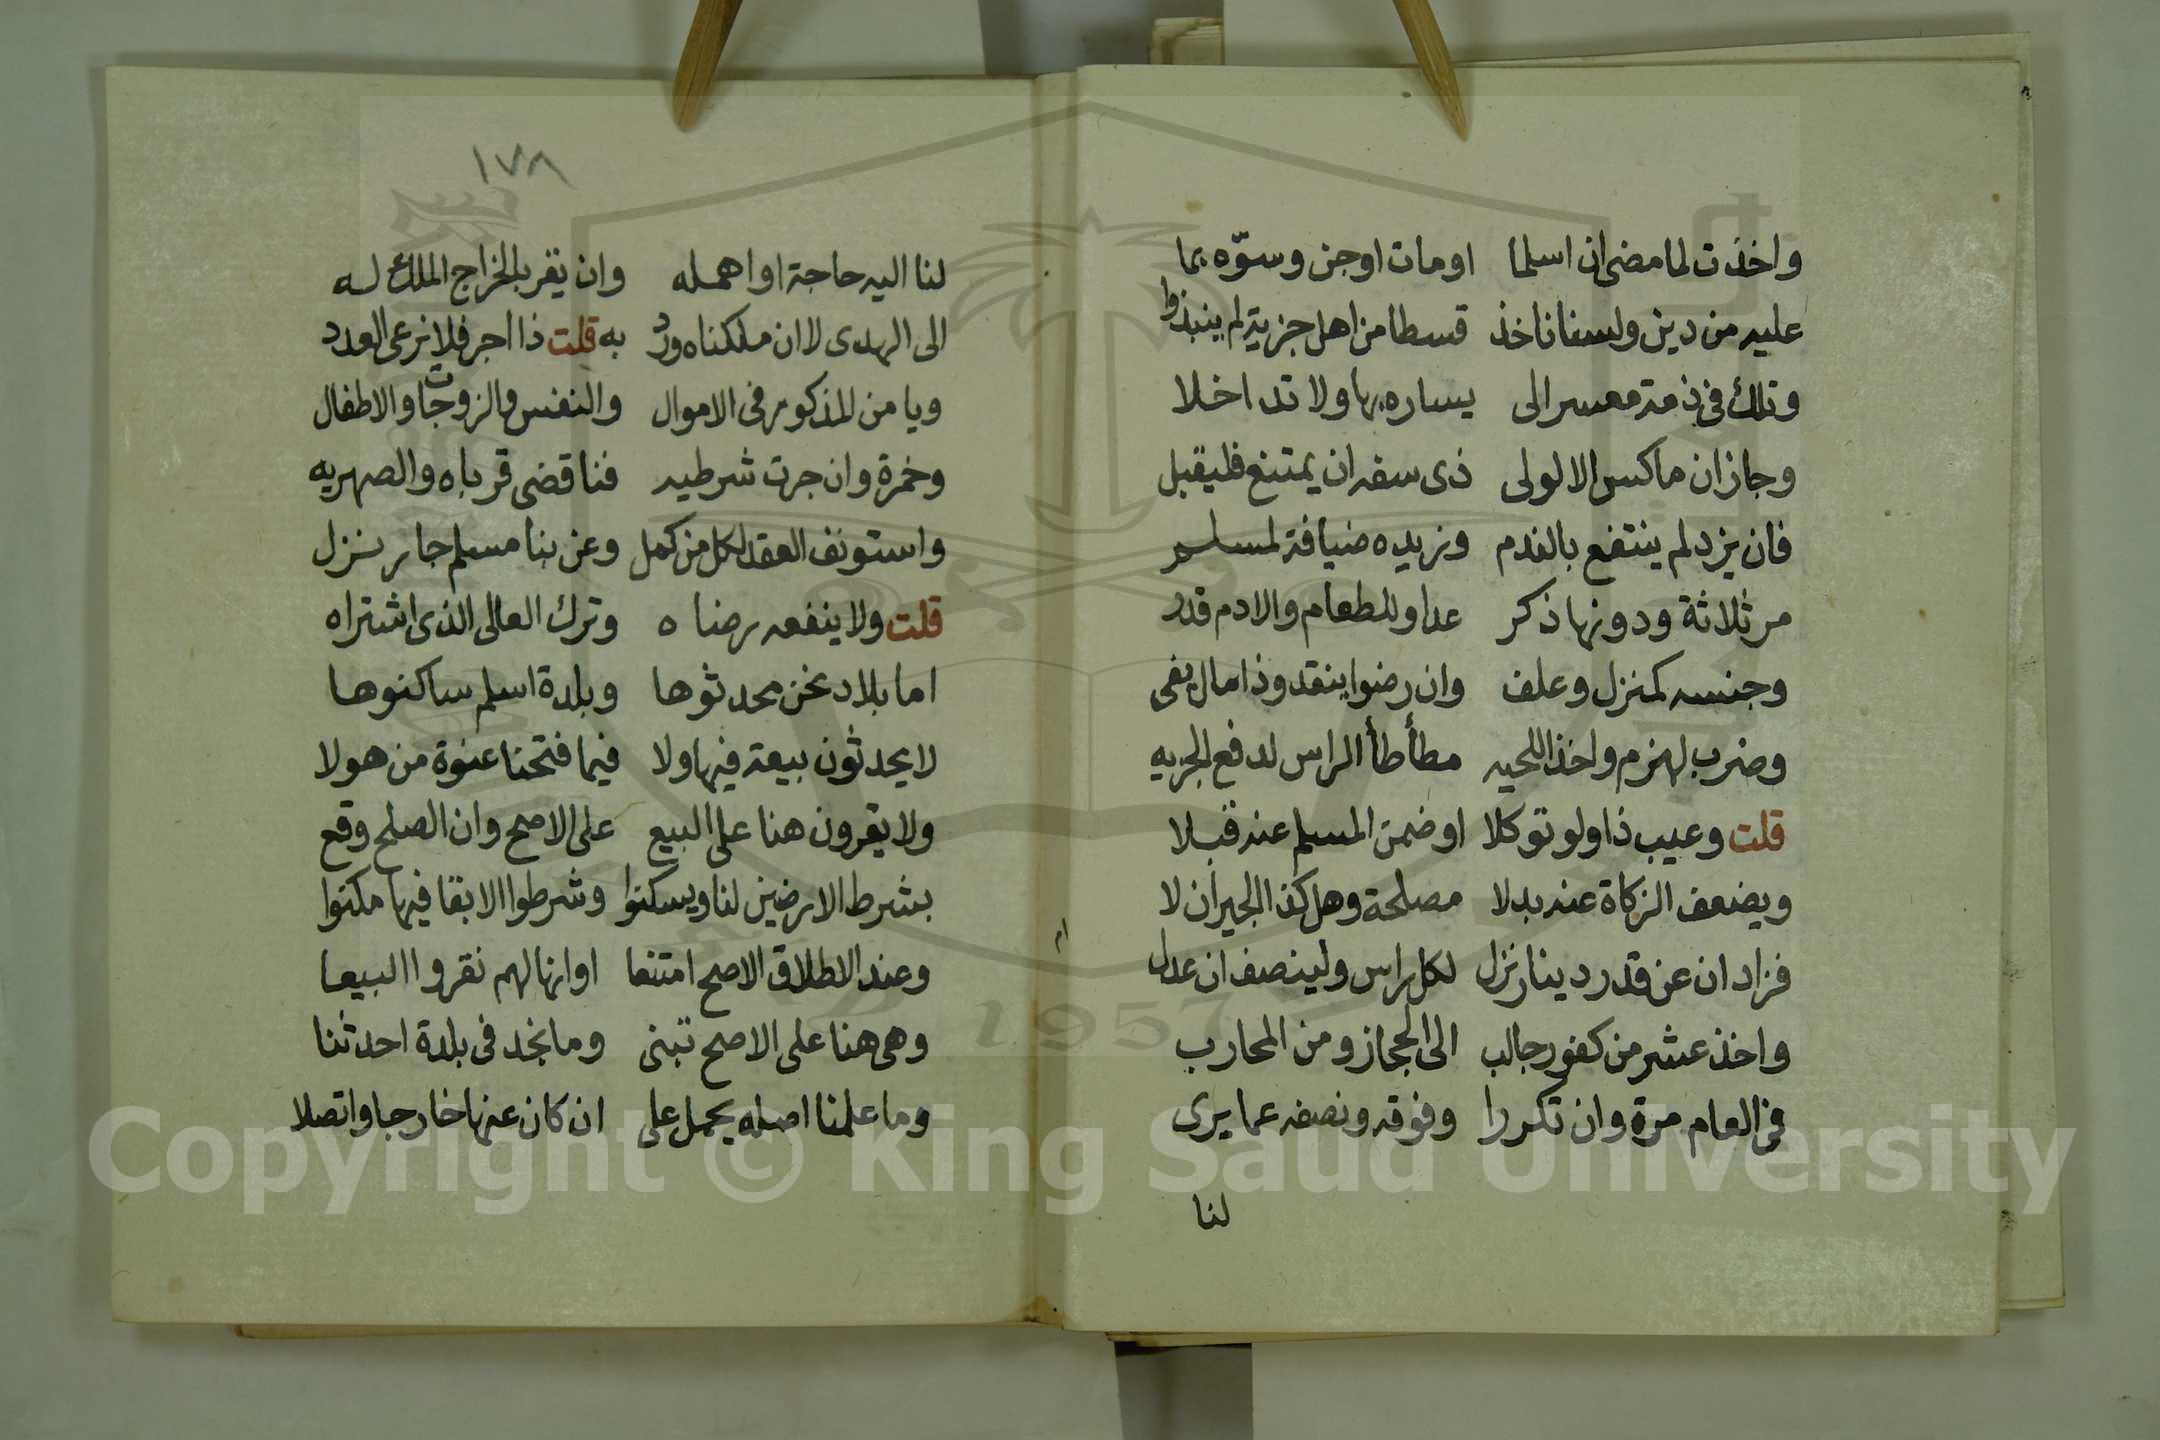 واخذت لما مضى ان اسلما اومات اوجن وسوّه بما
عليه من دين ولسنا ناخذ قسطا من اهل جزية لم ينبذوا
وتلك في ذمة معسر الى يساره بها ولا تداخلا
وجاز ان ماكس الا لولى ذى سفه ان يمتنع فليقبل
فان يزد لم ينتفع بالندم ونزيده ضيافة لمسلم
مر ثلاثة ودونها ذكر عدا وللطعام والادم قدر
وجنسه كمنزل وعلف وان رضوا ينقد وذا مال يفى
وضرب لهزم واخذ اللحيه مطأطأ الراس لدفع الجزيه
قلت وعيب ذا ولو توكلا او ضمن المسلم عنه قبلا
ويضعف الزكاة عنه بدلا مصلحة وهل كذا الجيران لا
فزاد ان عن قدر دينار نزل لكل راس ولينصف ان عدل
واخذ عشر من كفور جالب الى الحجاز ومن المحارب
في العام مرة وان تكررا وفوقه ونصفه عما يرى
لنا
١٧٨
لنا اليه حاجة او اهمله وان يقر بالخراج الملك له
الى الهدى لا ان ملكناه ورد به قلت ذا اجر فلا نرعى العدد
ويا من المذكور في الاموال والنفس والزوجات والاطفال
وخمرة وان جرت شرطيه فنا قضى قرباه والصهريه
واستونف العقد لكل من كمل وعن بنا مسلم جار نزل
قلت ولا ينفعه رضاه وترك العالى الذى اشتراه
اما بلاد نحن محدثوها وبلدة اسلم ساكنوها
لا يحدثون بيعة فيها ولا فيما فتحنا عنوة من هولا
ولا يقرون هنا على البيع على الاصح وان الصلح وقع
بشرط الارضين لنا ويسكنوا وشرطوا الابقا فيها مكنوا
وعند الاطلاق الاصح امتنعا او انها لهم نقروا البيعا
وهي هنا على الاصح تبنى وما نجد في بلدة احدثنا
وما علمنا اصله يحمل على ان كان عنها خارجا واتصلا
Copyright © King Saud University
1957